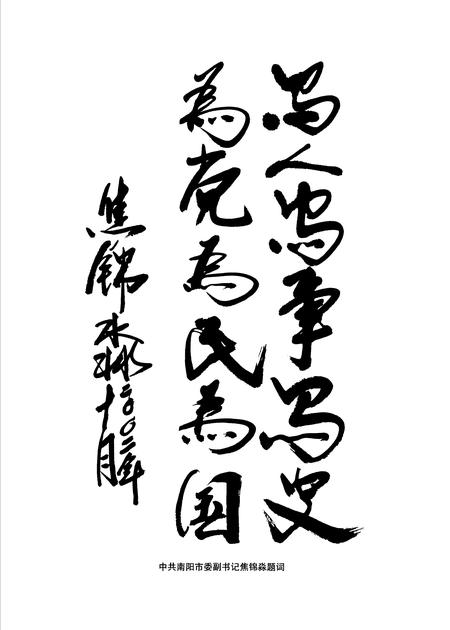 写人写事写史
为党为民为国
焦锦淼
二〇〇二年
十月
中共南阳市委副书记焦锦淼题词